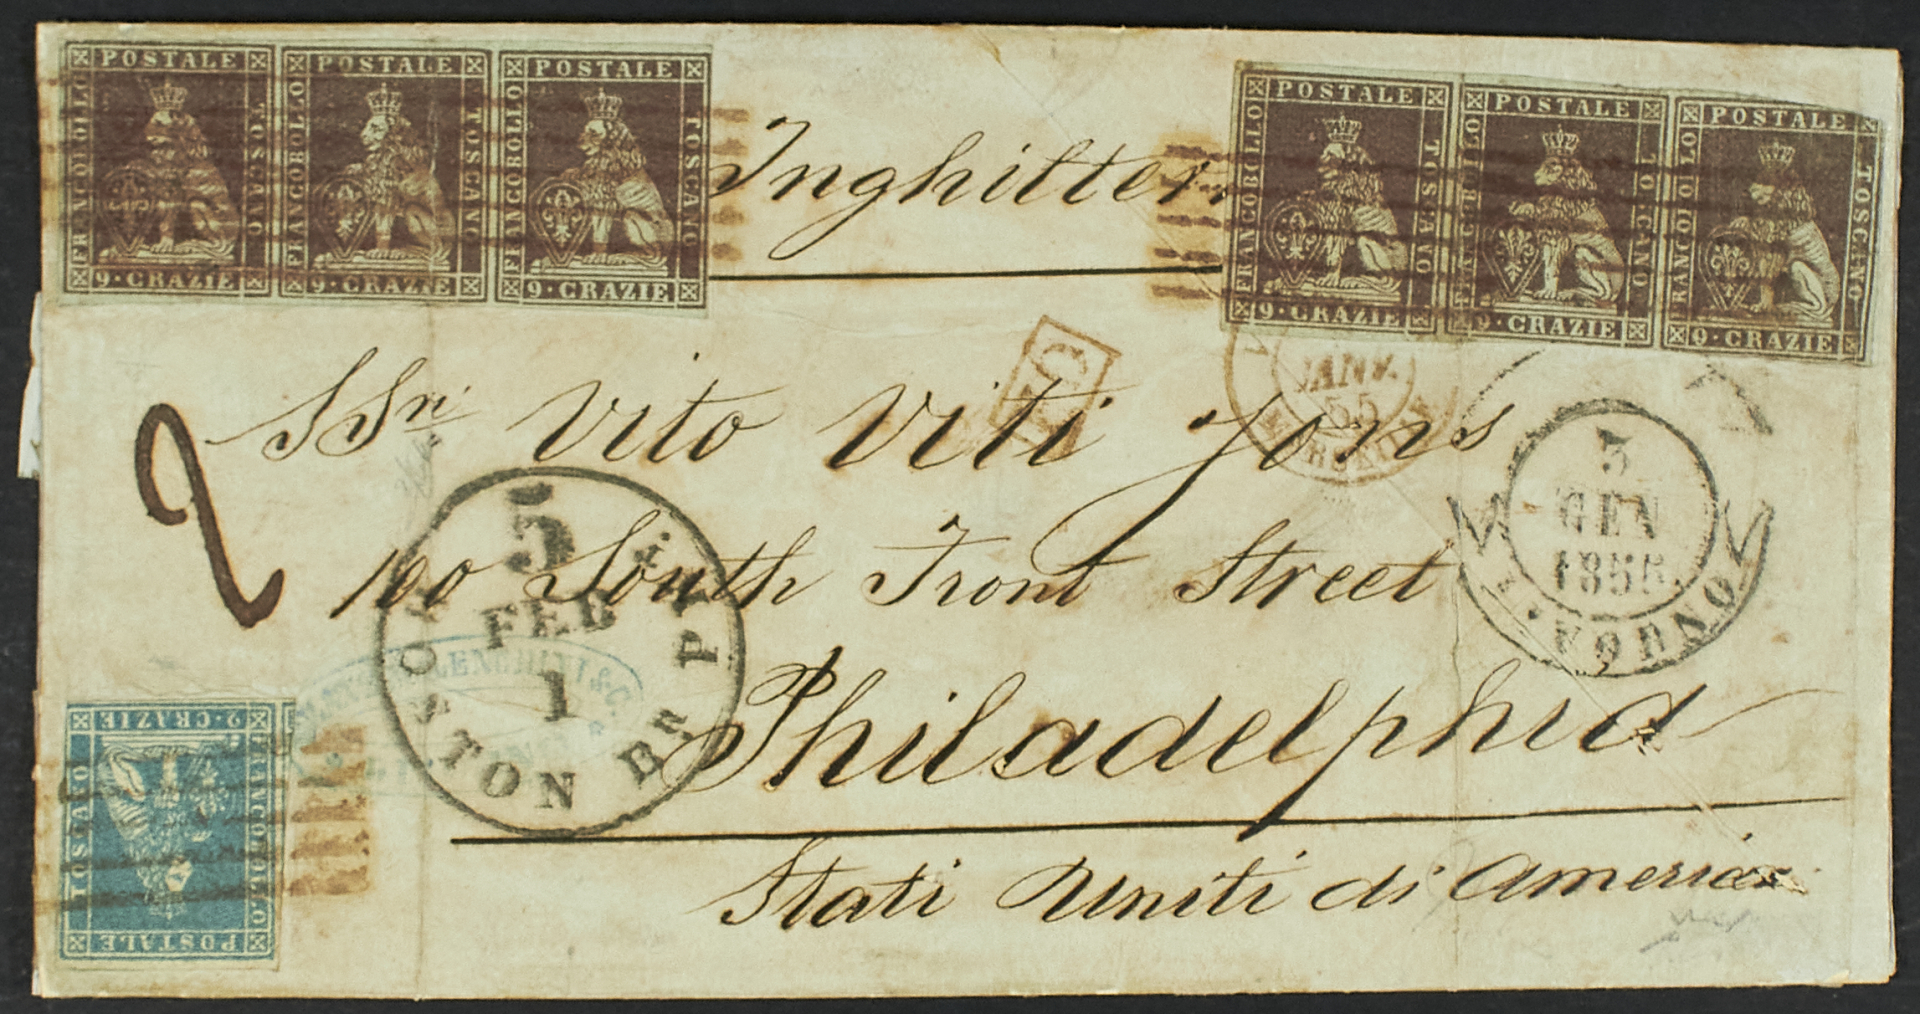 POSTALE POSTALE POSTALE
FRANCOBOLLO TOSCANO FRANCOBOLLO TOSCANO FRANCOBOLLO TOSCANO
9·CRAZIE 9·CRAZIE 9·CRAZIE
POSTALE POSTALE POSTALE
FRANCOBOLLO TOSCANO FRANCOBOLLO TOSCANO FRANCOBOLLO TOSCANO
9·CRAZIE 9·CRAZIE 9·CRAZIE
Inghilter
JANV.
55
SSri Vito Viti Sons
2
3
GEN
1855
LIVORNO
100 South Front Street
5
FEB
1
BOSTON Br. PKT.
& C.
Philadelphia
Stati Uniti di America
2·CRAZIE
FRANCOBOLLO
TOSCANO
POSTALE